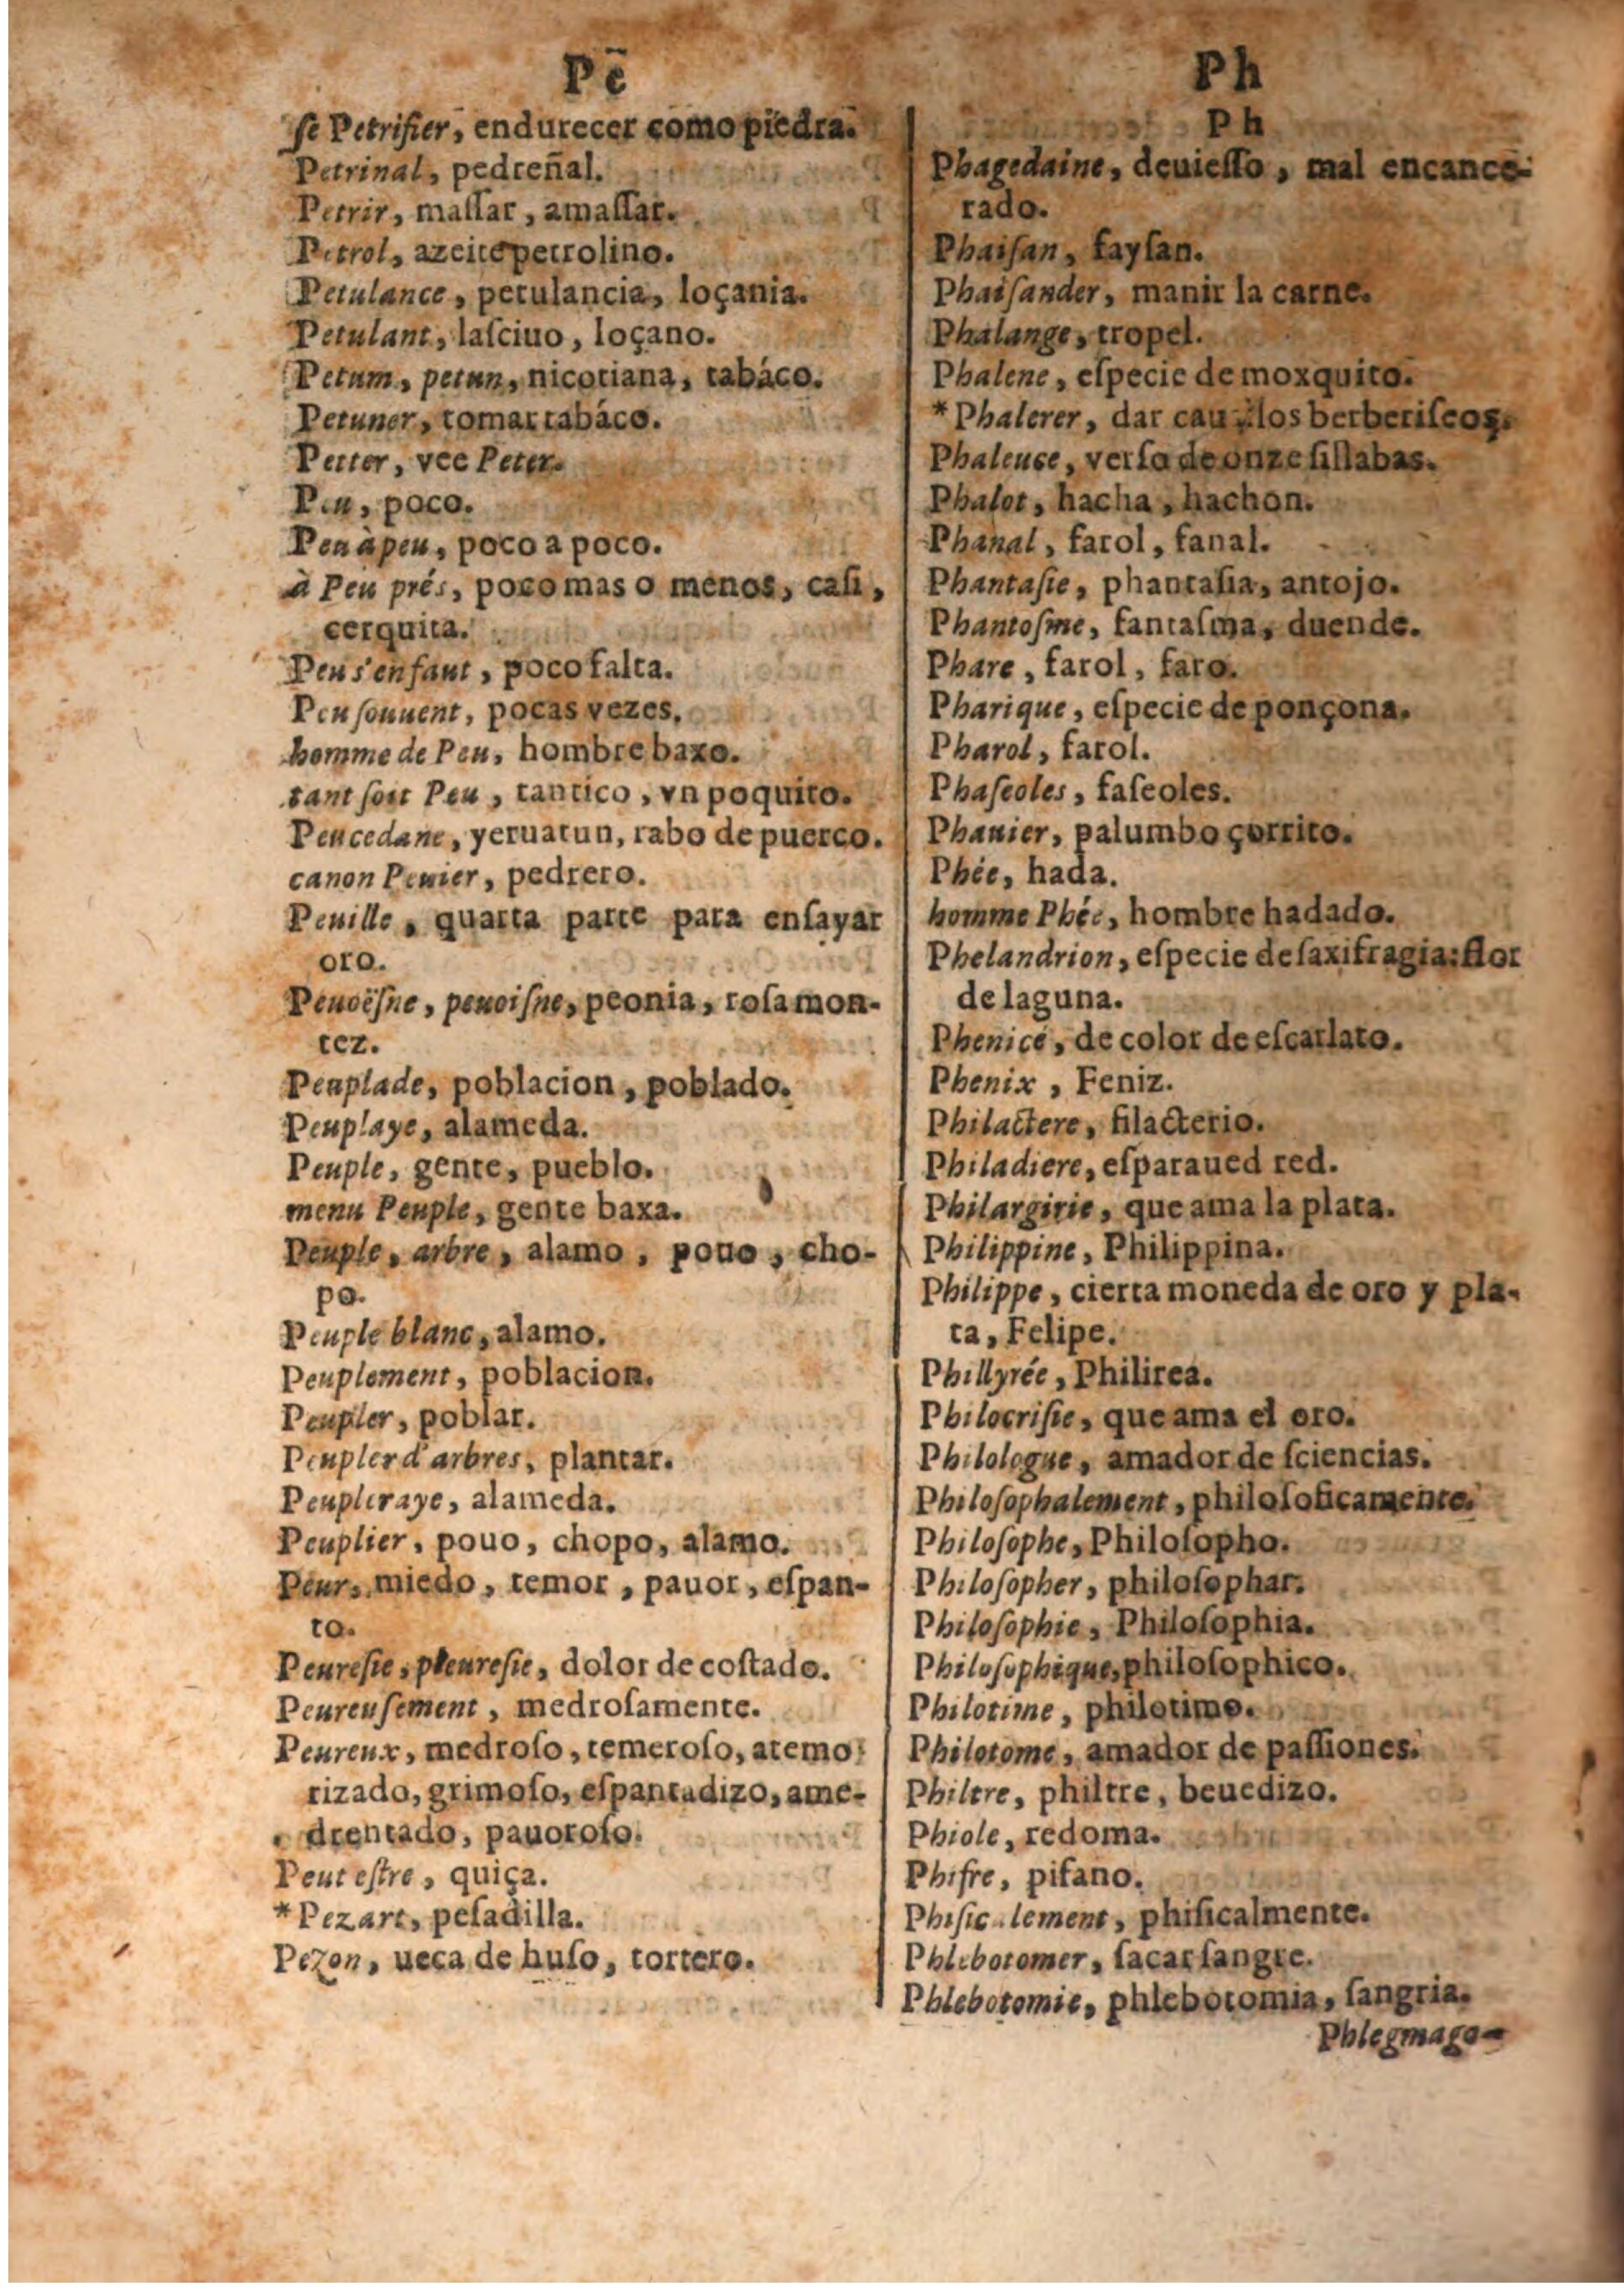 Pē
ſe Petrifier, endurecer como piedra.
Petrinal, pedreñal.
Petrir, maſſar, amaſſar.
Petrol, azeite petrolino.
Petulance, petulancia, loçania.
Petulant, laſciuo, loçano.
Petum, petun, nicotiana, tabáco.
Petuner, tomar tabáco.
Petter, vee Peter.
Peu, poco.
Peu à peu, poco a poco.
à Peu prés, poco mas o menos, caſi,
cerquita.
Peu s'en faut, poco falta.
Peu ſouuent, pocas vezes.
homme de Peu, hombre baxo.
tant ſoit Peu, tantico, vn poquito.
Peucedane, yeruatun, rabo de puerco.
canon Peuier, pedrero.
Peuille, quarta parte para enſayar
oro.
Peuoëſne, peuoiſne, peonia, roſa mon-
tez.
Peuplade, poblacion, poblado.
Peuplaye, alameda.
Peuple, gente, pueblo.
menu Peuple, gente baxa.
Peuple, arbre, alamo, pouo, cho-
po.
Peuple blanc, alamo.
Peuplement, poblacion.
Peupler, poblar.
Peupler d'arbres, plantar.
Peupleraye, alameda.
Peuplier, pouo, chopo, alamo.
Peur, miedo, temor, pauor, eſpan-
to.
Peureſie, pleureſie, dolor de coſtado.
Peureuſement, medroſamente.
Peureux, medroſo, temeroſo, atemo
rizado, grimoſo, eſpantadizo, ame-
drentado, pauoroſo.
Peut eſtre, quiça.
*Pezart, peſadilla.
Pezon, ueca de huſo, tortero.
Ph
Ph
Phagedaine, deuieſſo, mal encance-
rado.
Phaiſan, fayſan.
Phaiſander, manir la carne.
Phalange, tropel.
Phalene, eſpecie de moxquito.
*Phalerer, dar los berberiſcos.
Phaleuce, verſo de onze ſillabas.
Phalot, hacha, hachon.
Phanal, farol, fanal.
Phantaſie, phantaſia, antojo.
Phantoſme, fantaſma, duende.
Phare, farol, faro.
Pharique, eſpecie de ponçona.
Pharol, farol.
Phaſeoles, faſeoles.
Phauier, palumbo çorrito.
Phée, hada.
homme Phée, hombre hadado.
Phelandrion, eſpecie de ſaxifragia: flor
de laguna.
Phenicé, de color de eſcarlato.
Phenix, Feniz.
Philactere, filacterio.
Philadiere, eſparaued red.
Philargirie, que ama la plata.
Philippine, Philippina.
Philippe, cierta moneda de oro y pla-
ta, Felipe.
Phillyrée, Philirea.
Philocriſie, que ama el oro.
Philologue, amador de ſciencias.
Philoſophalement, philoſoficamente.
Philoſophe, Philoſopho.
Philoſopher, philoſophar.
Philoſophie, Philoſophia.
Philoſophique, philoſophico.
Philotime, philotimo.
Philotome, amador de paſſiones.
Philtre, philtre, beuedizo.
Phiole, redoma.
Phifre, pifano.
Phiſicalement, phiſicalmente.
Phlebotomer, ſacar ſangre.
Phlebotomie, phlebotomia, ſangria.
Phlegmago-